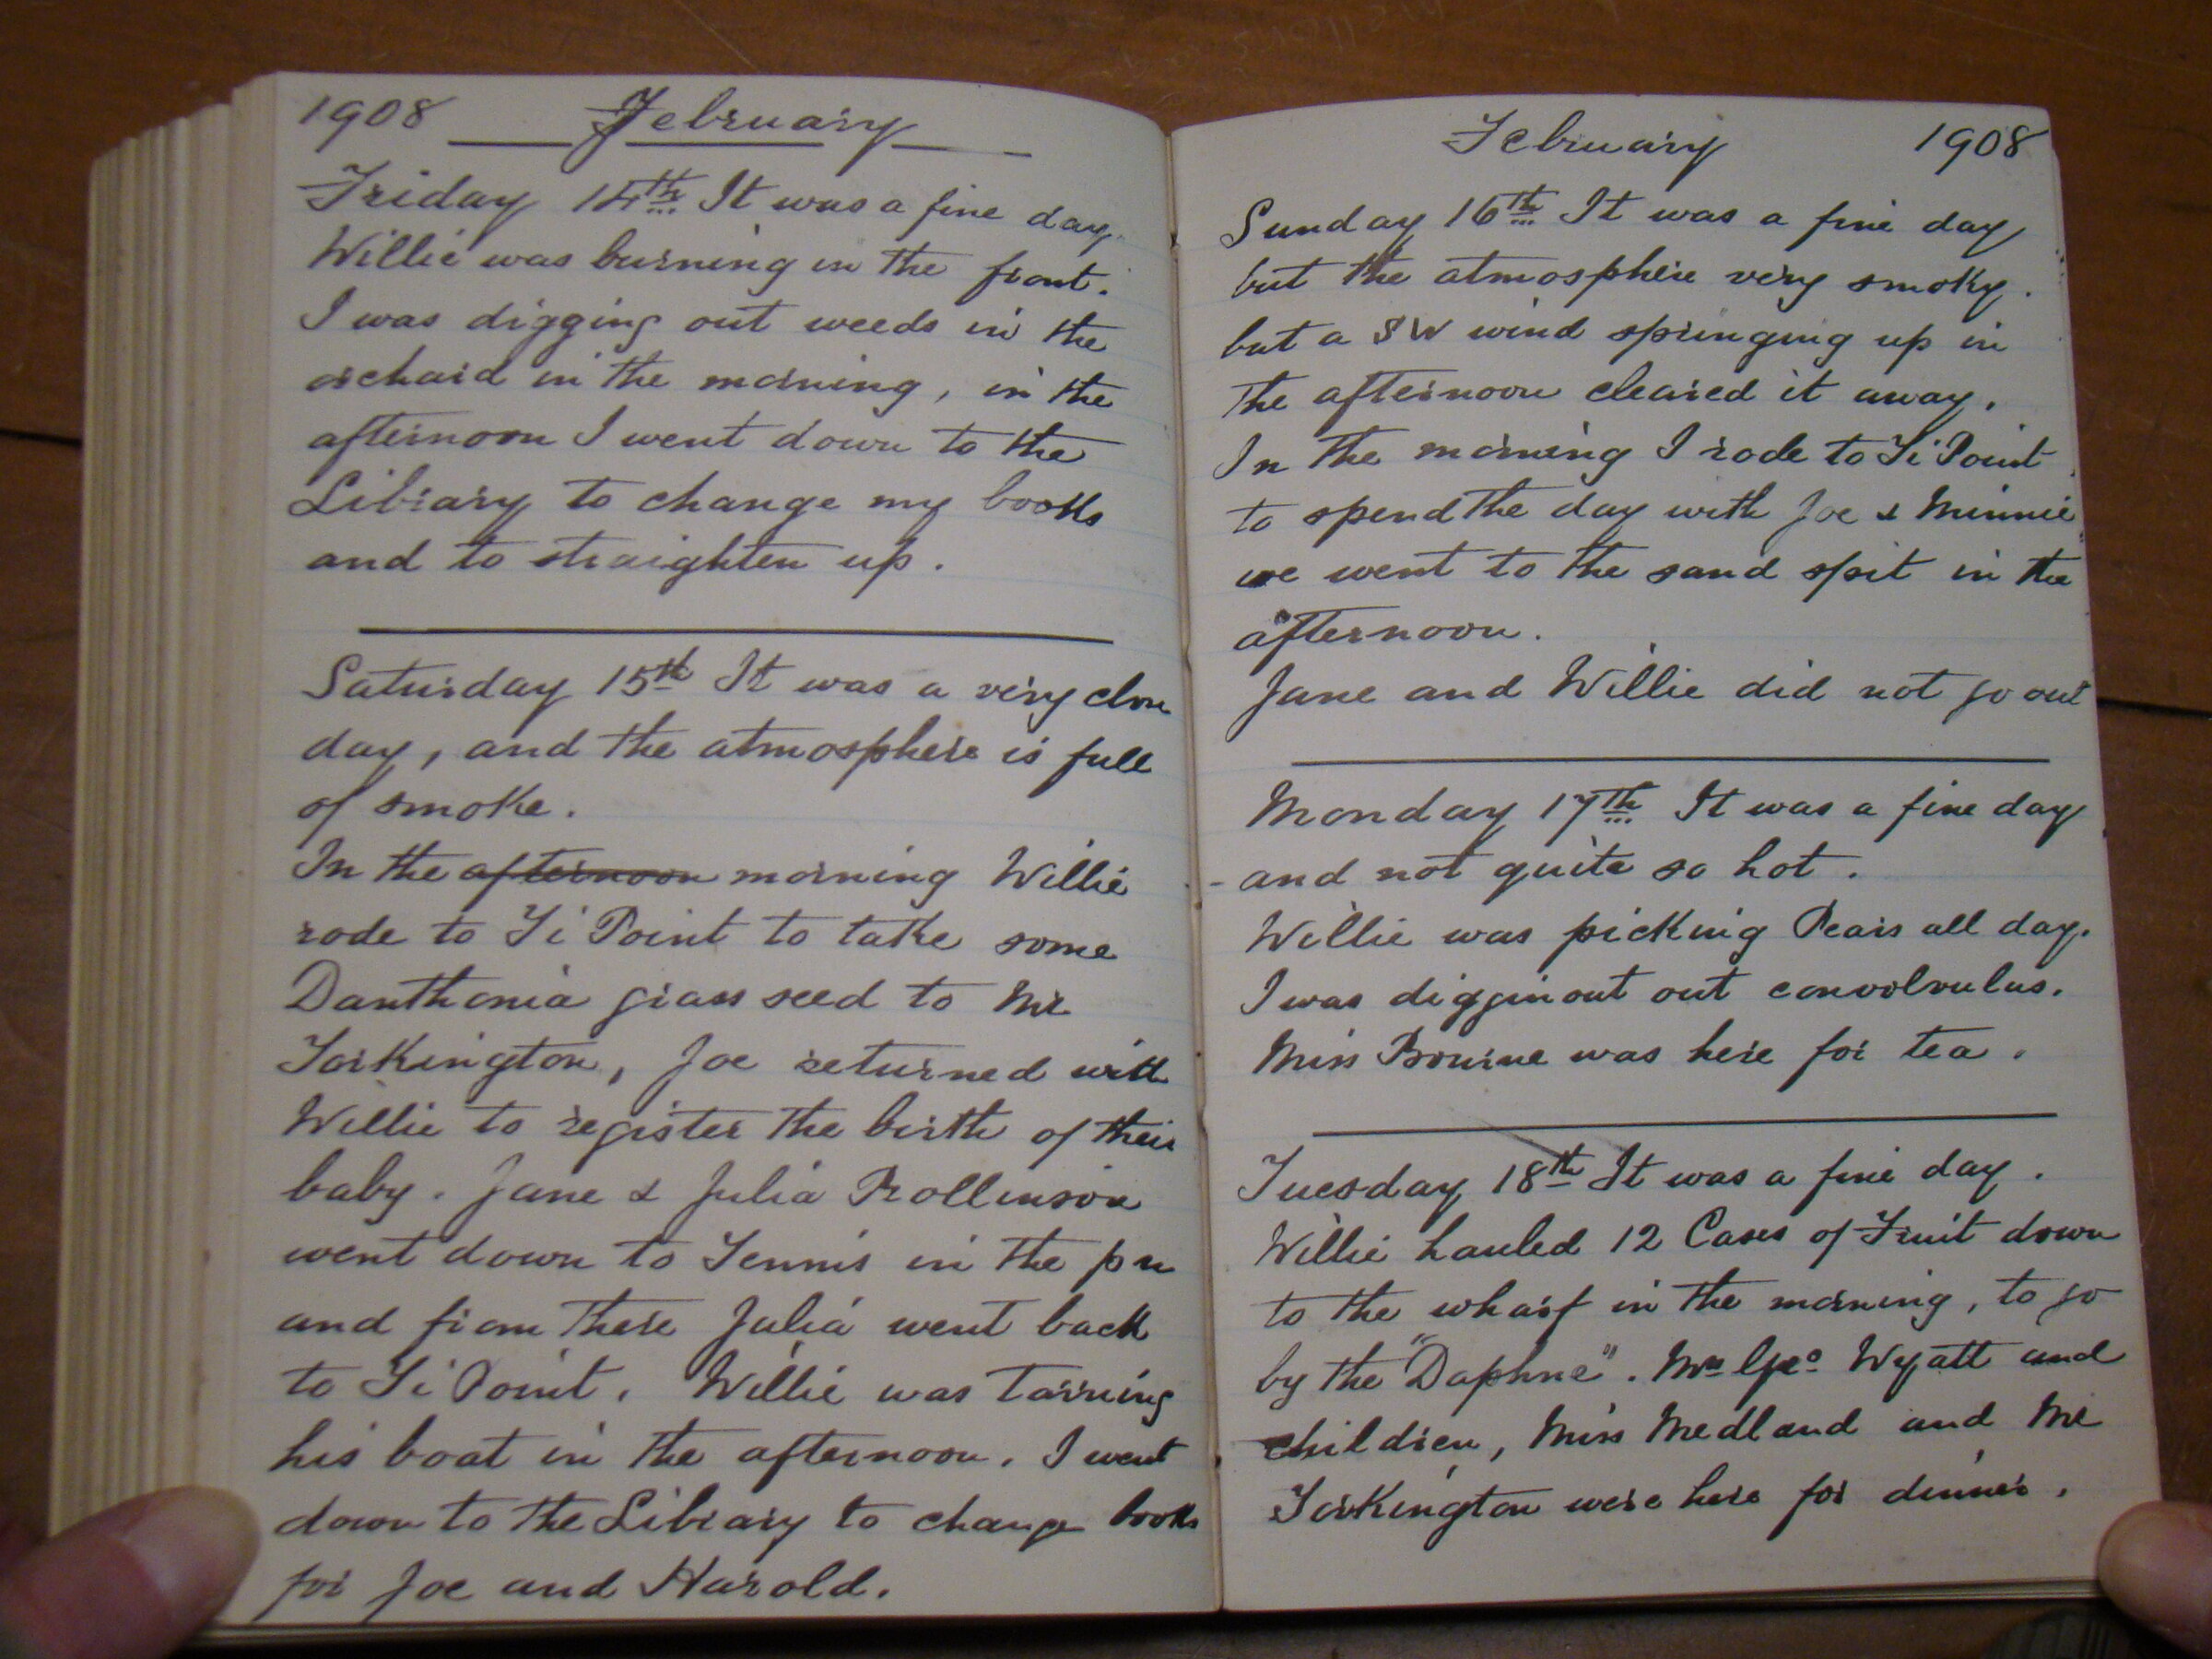 1908 February
Friday 14th It was a fine day.
Willie was burning in the front.
I was digging out weeds in the
orchard in the morning, in the
afternoon I went down to the
Library to change my books
and to straighten up.
Saturday 15th It was a very close
day, and the atmosphere is full
of smoke.
In the afternoon morning Willie
rode to Ti Point to take some
Danthonia grass seed to Mr
Torkington, Joe returned with
Willie to register the birth of their
baby. Jane & Julia Rollinson
went down to Tennis in the pm
and from there Julia went back
to Ti Point. Willie was Tarring
his boat in the afternoon. I went
down to the Library to change books
for Joe and Harold.
February 1908
Sunday 16th It was a fine day
but the atmosphere very smoky.
but a SW wind springing up in
the afternoon cleared it away.
In the morning I rode to Ti Point
to spend the day with Joe & Minnie
we went to the sand spit in the
afternoon.
Jane and Willie did not go out
Monday 17th It was a fine day
and not quite so hot.
Willie was picking Pears all day.
I was digginout out convolvulus.
Miss Bourne was here for tea.
Tuesday 18th It was a fine day.
Willie hauled 12 Cases of Fruit down
to the wharf in the morning, to go
by the "Daphne". Mrs Geo Wyatt and
children, Miss Medland and Mr
Torkington were here for dinner.